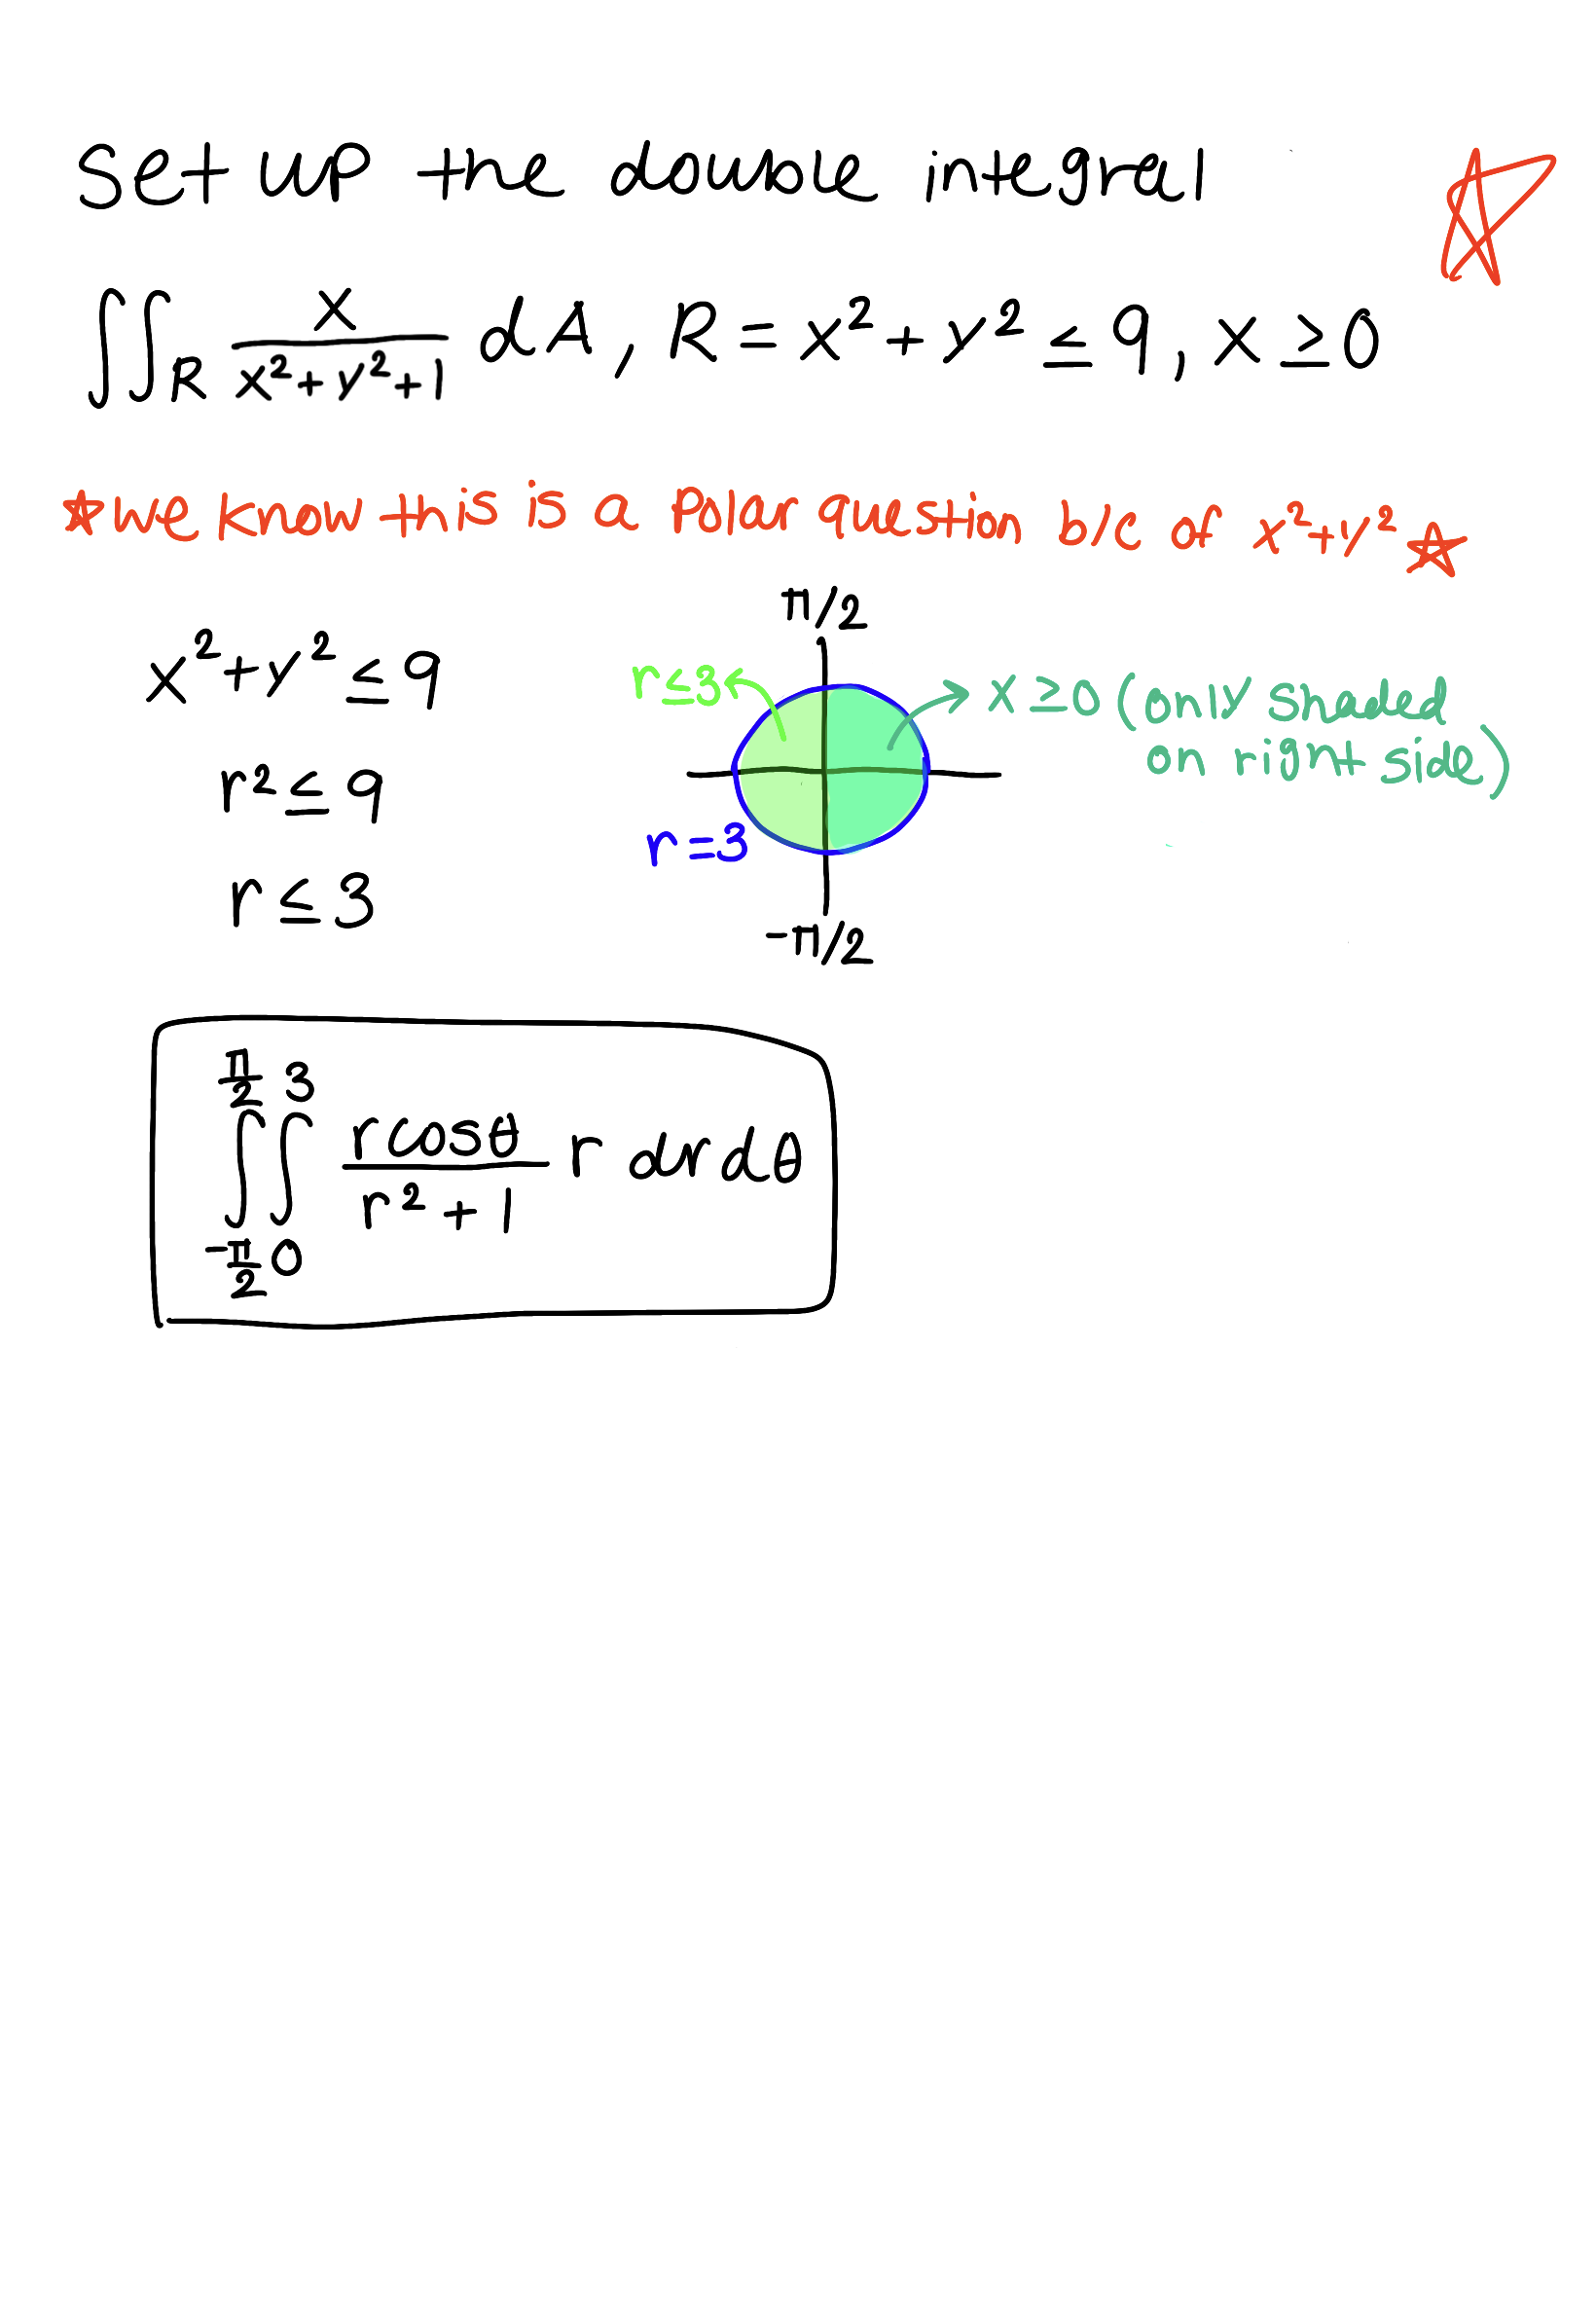 Set up the double integral
∫∫_R x/(x²+y²+1) dA, R = x²+y² ≤ 9, x ≥ 0
☆ we know this is a Polar question b/c of x²+y² ☆
x²+y² ≤ 9
r² ≤ 9
r ≤ 3
π/2
r≤3
x ≥0 (only shaded
on right side)
r=3
-π/2
∫_{-π/2}^{π/2} ∫_0^3 (rcosθ)/(r²+1) r drdθ